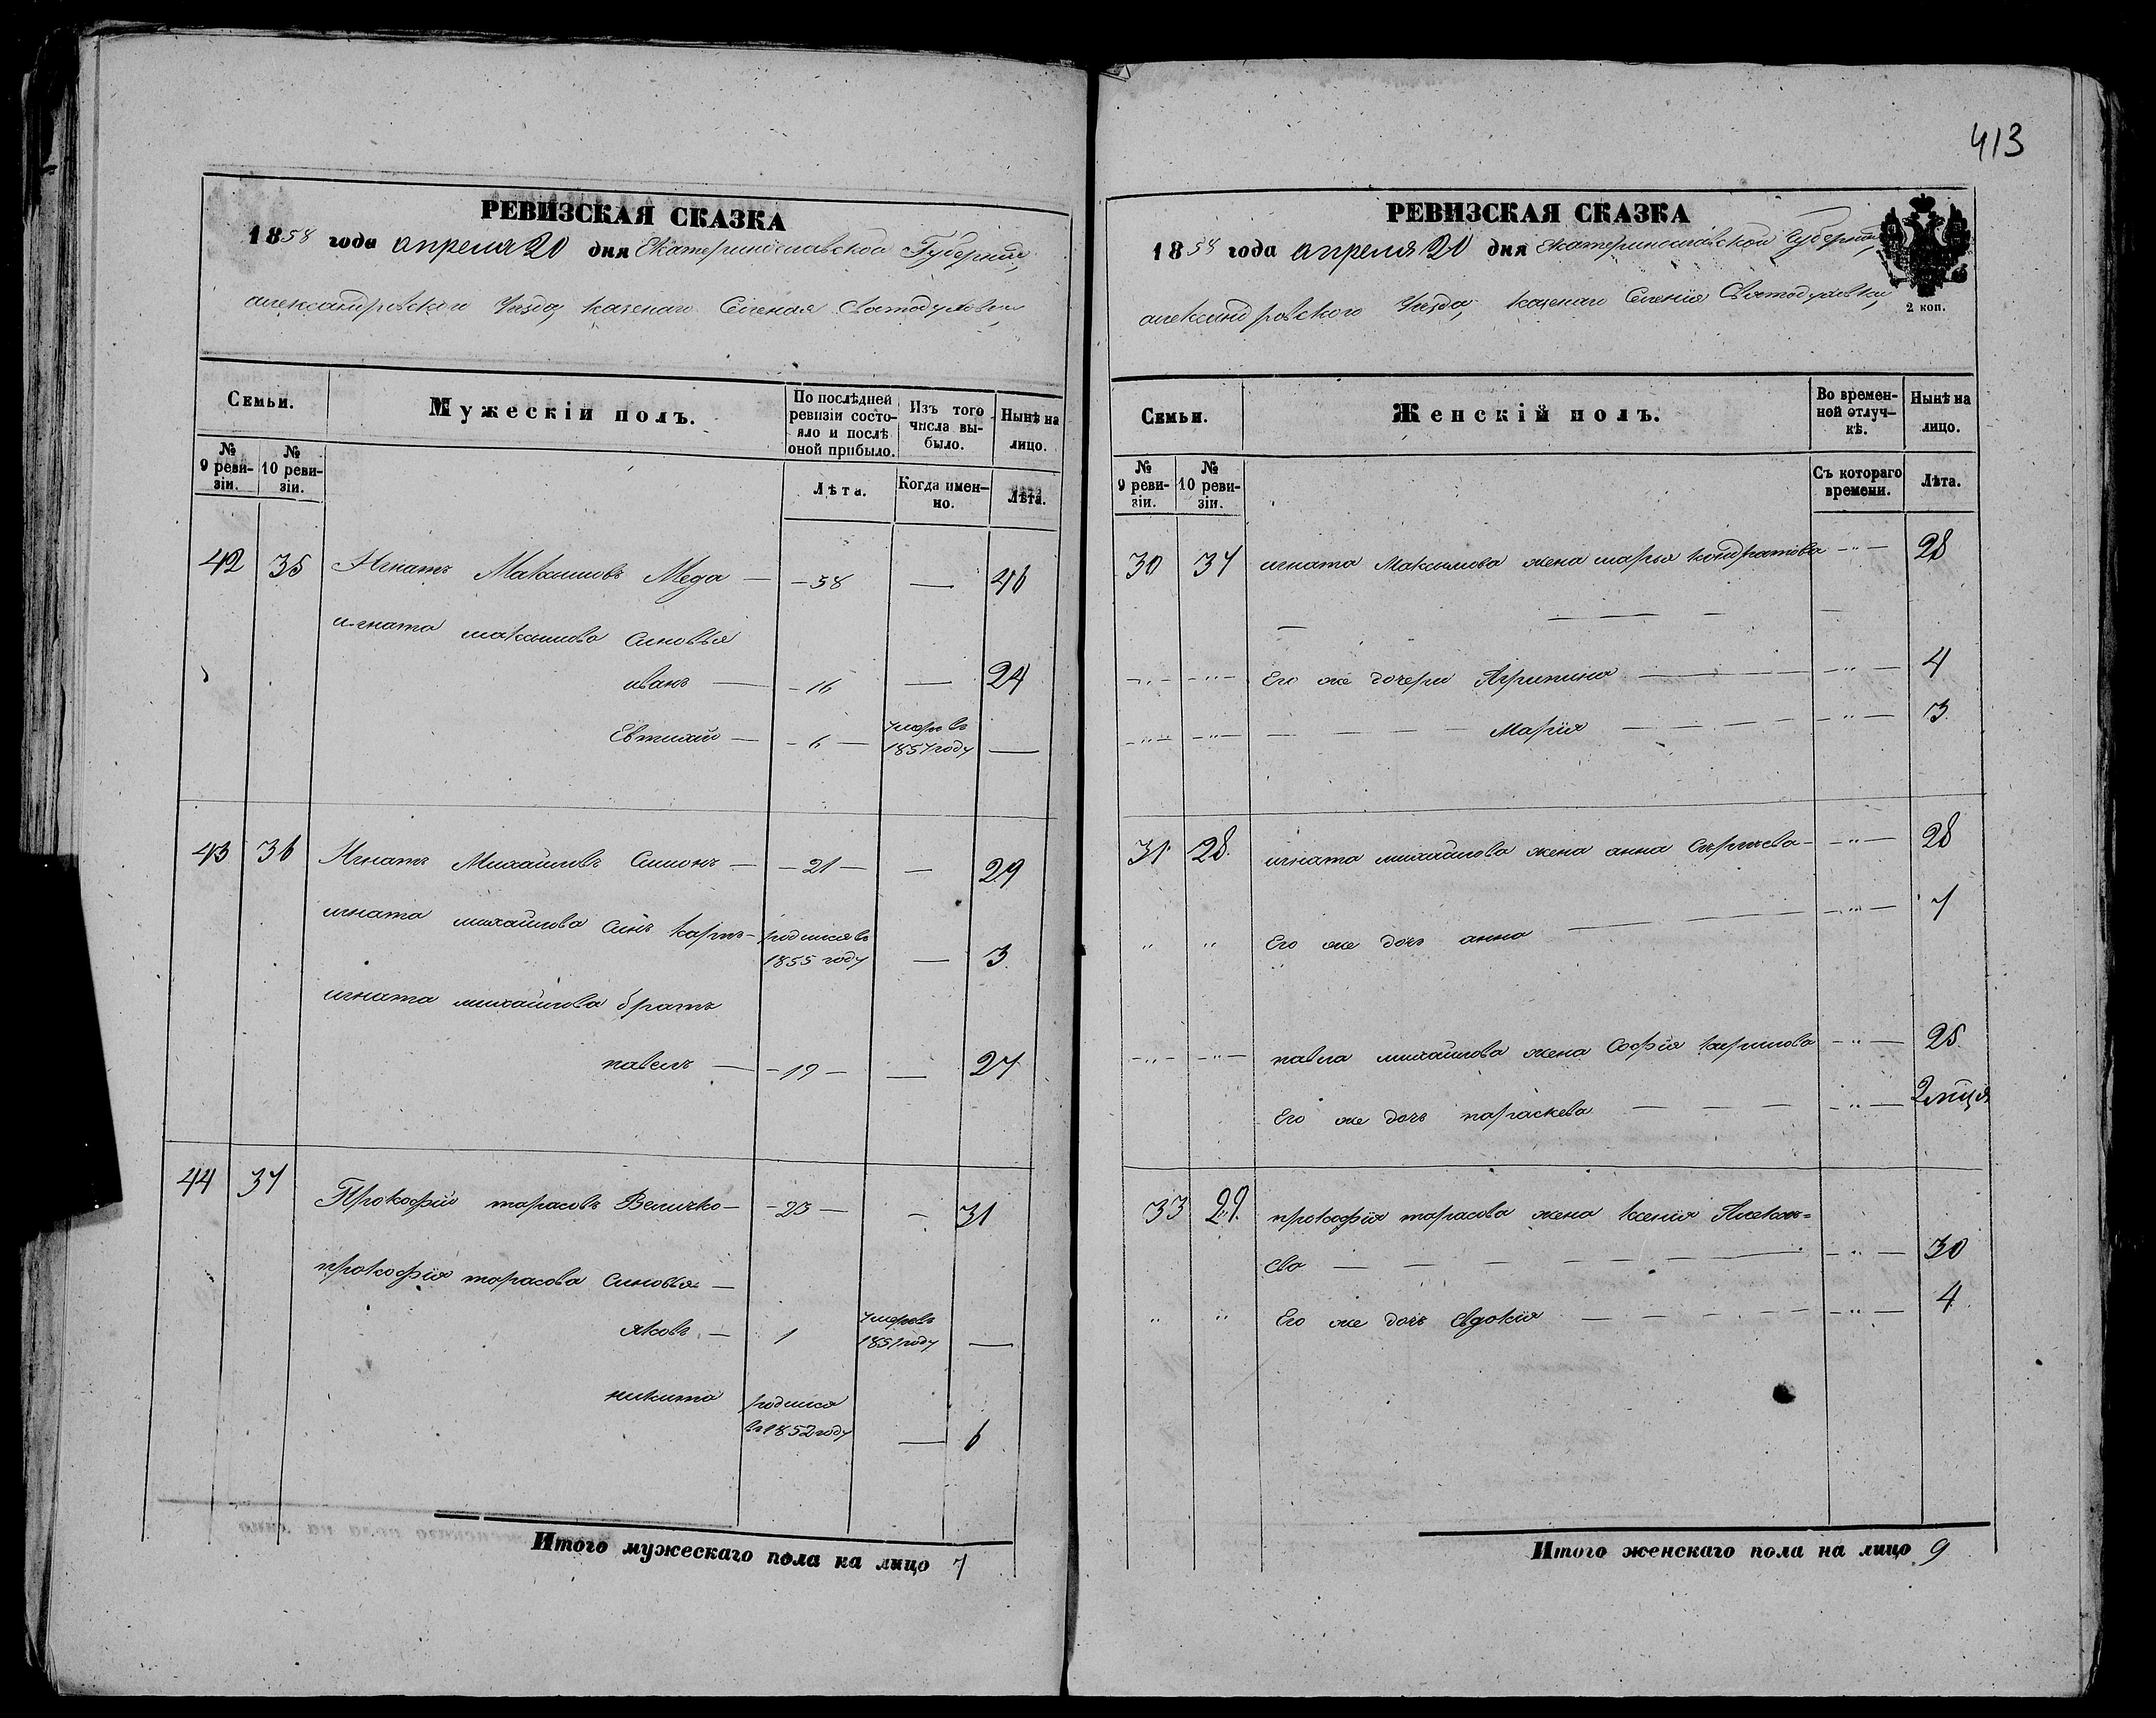 413
РЕВИЗСКАЯ СКАЗКА
1858 года апреля 20 дня Екатеринославской Губернии,
александровского Уезда, казенаго Селения Святодуховки
Семьи.
Мужескій полъ.
По послѣдней ревизіи состояло и послѣ оной прибыло.
Изъ того числа выбыло.
Нынѣ на лицо.
№ 9 ревизіи.
№ 10 ревизіи.
Лѣта.
Когда именно.
Лѣта.
42 35 Игнатъ Максимовъ — 58 — 46
игната максимова синовья
иванъ — 16 — 24
Евтихий — 6 — умеръ въ 1857 году —
43 36 Игнатъ Михайловъ — 21 — — 29
игната михайлова синъ карпъ — родился въ 1855 году — 3
игната михайлова братъ
павелъ — 19 — — 27
44 37 Прокофий тарасовъ Величко — 23 — — 31
прокофія тарасова синовья —
яковъ — 1 умеръ въ 1857 году —
никита родился въ 1852 году — 6
Итого мужескаго пола на лицо 7
РЕВИЗСКАЯ СКАЗКА
1858 года апреля 20 дня Екатеринославской Губернии,
александровского Уезда, казенаго Селения Святодуховки,
2 коп.
Семьи.
Женскій полъ.
Во временной отлучкѣ.
Нынѣ на лицо.
№ 9 ревизіи.
№ 10 ревизіи.
Съ котораго времени.
Лѣта.
30 37 игната Максимова жена марья кондратова — " — 28
— " — — " — Его же дочери Агрипина — " — 4
— " — — " — Марія — " — 3
31 28 игната михайлова жена анна — " — 28
" " Его же дочь анна — " — 7
— " — — " — павла михайлова жена Софія — " — 25
Его же дочь параскева — " — 2 мця
33 29 прокофія тарасова жена ксенія Алексѣ=
ева — " — 30
" " Его же дочь Евдокія — " — 4
Итого женскаго пола на лицо 9